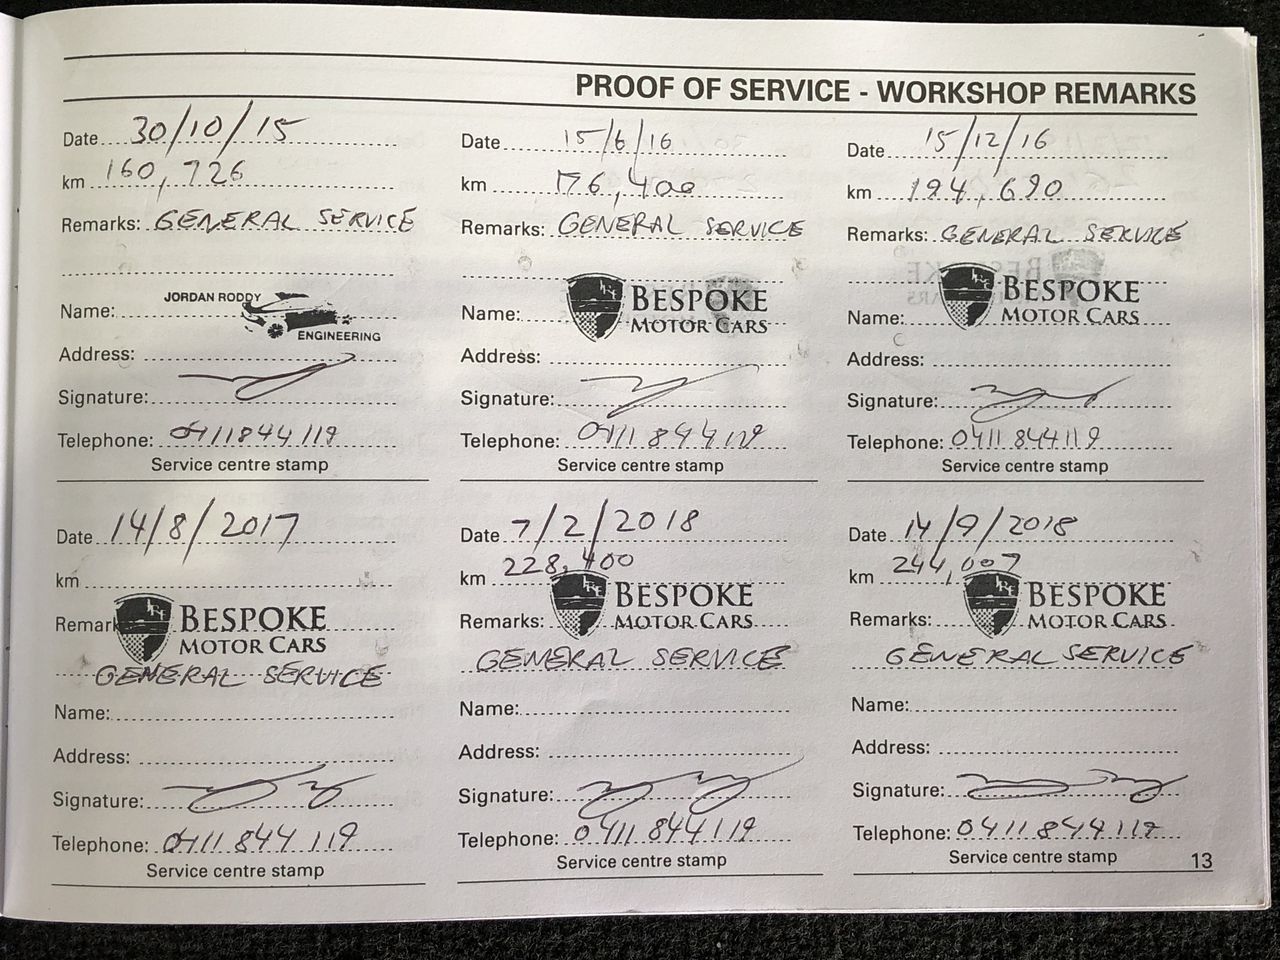 PROOF OF SERVICE - WORKSHOP REMARKS
Date 30/10/15
km 160,726
Remarks: GENERAL SERVICE
JORDAN RODDY
Name:
ENGINEERING
Address:
Signature:
Telephone: 0411844119
Service centre stamp
Date 15/6/16
km 176,400
Remarks: GENERAL SERVICE
BESPOKE
Name: MOTOR CARS
Address:
Signature:
Telephone: 0411 844119
Service centre stamp
Date 15/12/16
km 194,690
Remarks: GENERAL SERVICE
BESPOKE
Name: MOTOR CARS
Address:
Signature:
Telephone: 0411 844119
Service centre stamp
Date 14/8/2017
km
Remark BESPOKE
MOTOR CARS
GENERAL SERVICE
Name:
Address:
Signature:
Telephone: 0411 844 119
Service centre stamp
Date 7/2/2018
km 228,400
BESPOKE
Remarks: MOTOR CARS
GENERAL SERVICE
Name:
Address:
Signature:
Telephone: 0411 844119
Service centre stamp
Date 14/9/2018
km 244,007
BESPOKE
Remarks: MOTOR CARS
GENERAL SERVICE
Name:
Address:
Signature:
Telephone: 0411 844119
Service centre stamp
13